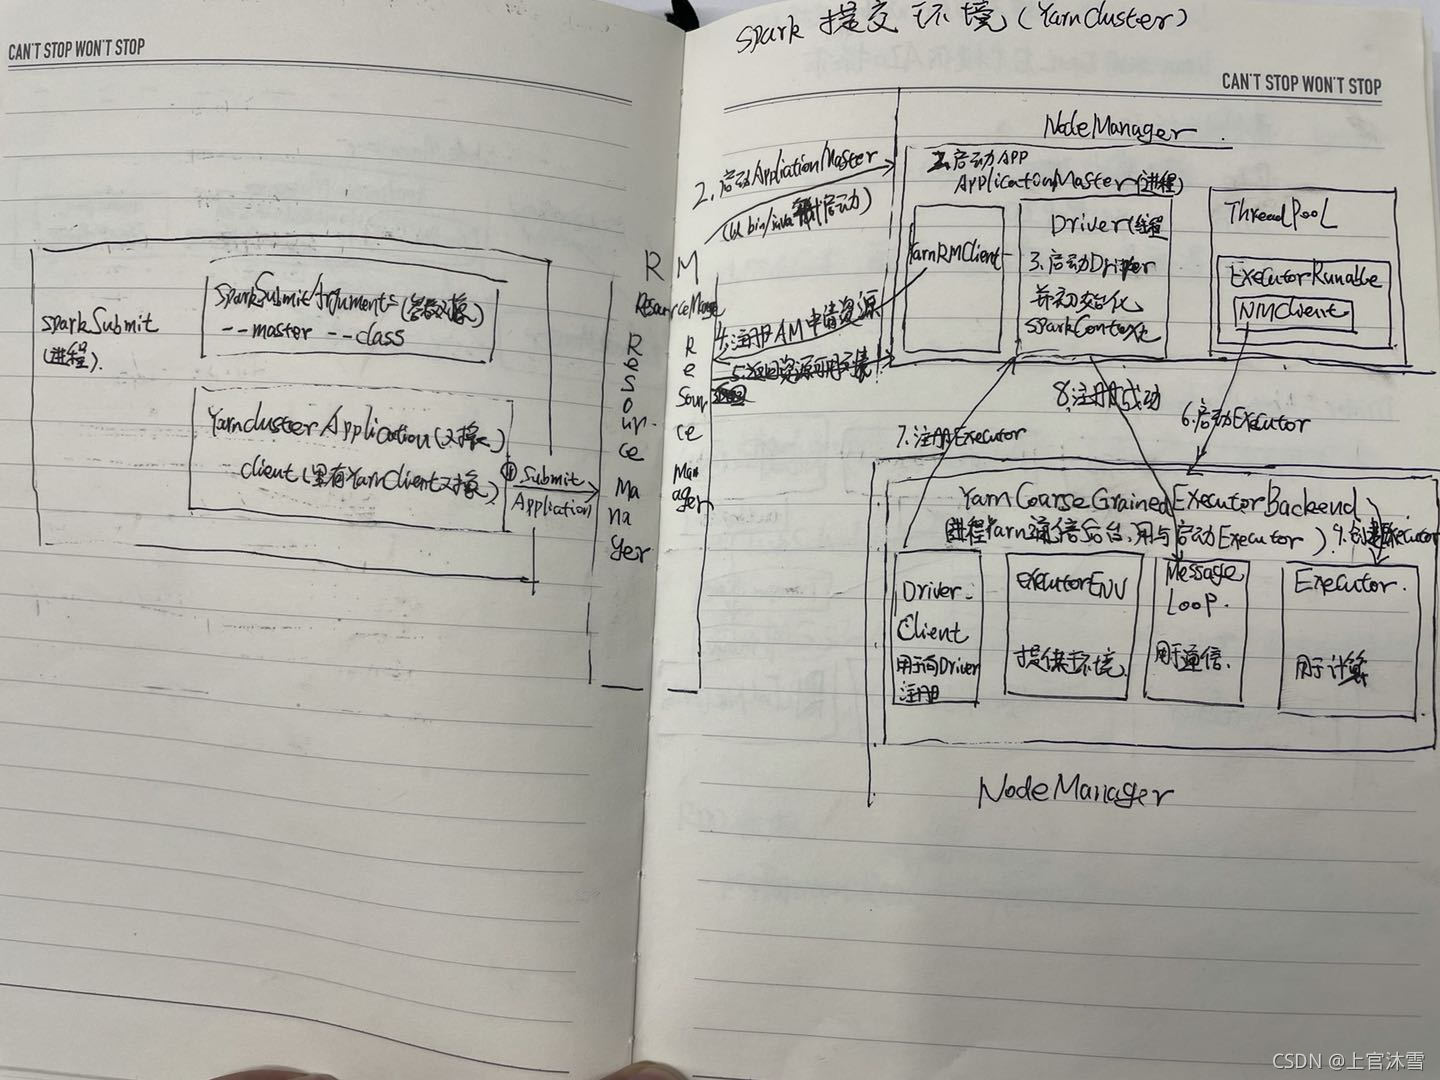 CAN'T STOP WON'T STOP
SparkSubmit
(进程).
SparkSubmitArguments(参数对象)
--master --class
YarnclusterApplication(对象)
client(里有YarnClient对象)
① Submit
Application
Spark 提交环境(Yarncluster)
CAN'T STOP WON'T STOP
R M
ResourceManager
Resource Manager
Resource Manager
2. 启动AppliationMaster
(以 bin/java 启动)
4.注册AM申请资源
5.返回资源可用列表
NodeManager
2.启动APP
ApplicationMaster(进程)
YarnRMClient
Driver(线程
3.启动Driver
并初始化
SparkContext
ThreadPool
ExecutorRunable
NMClient
8.注册成功
6.启动Executor
7.注册Executor
YarnCoarseGrainedExecutorBackend
(进程Yarn通信后台,用与启动Executor)
9.创建Executor
Driver-
Client
用于向Driver
注册
executorENV
提供环境
Message
Loop.
用于通信.
Executor.
用于计算
NodeManager
CSDN @上官沐雪